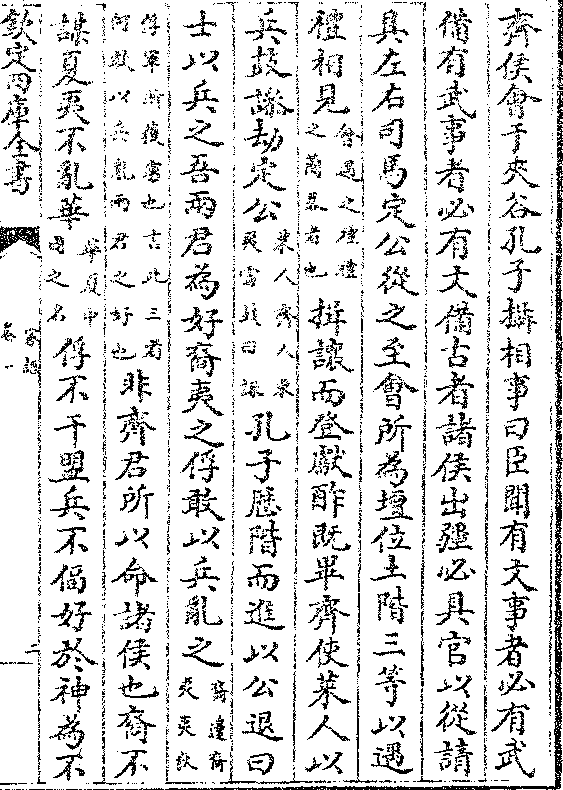 齊侯會于夾谷孔子攝相事曰臣聞有文事者必有武
備有武事者必有文備古者諸侯出疆必具官以從請
具左右司馬定公從之至會所為壇位土階三等以遇
禮相見會遇之禮禮之簡畧者也揖讓而登獻酢既畢齊使萊人以
兵鼓譟劫定公萊人齊人東夷雷鼓曰譟孔子歷階而進以公退曰
士以兵之吾兩君為好裔夷之俘敢以兵亂之裔邊裔夷夷狄
俘軍所獲虜也言此三者何敢以兵亂兩君之好也非齊君所以命諸侯也裔不
謀夏夷不亂華華夏中國之名俘不干盟兵不偪好於神為不
欽定四庫全書
家語
卷一
二